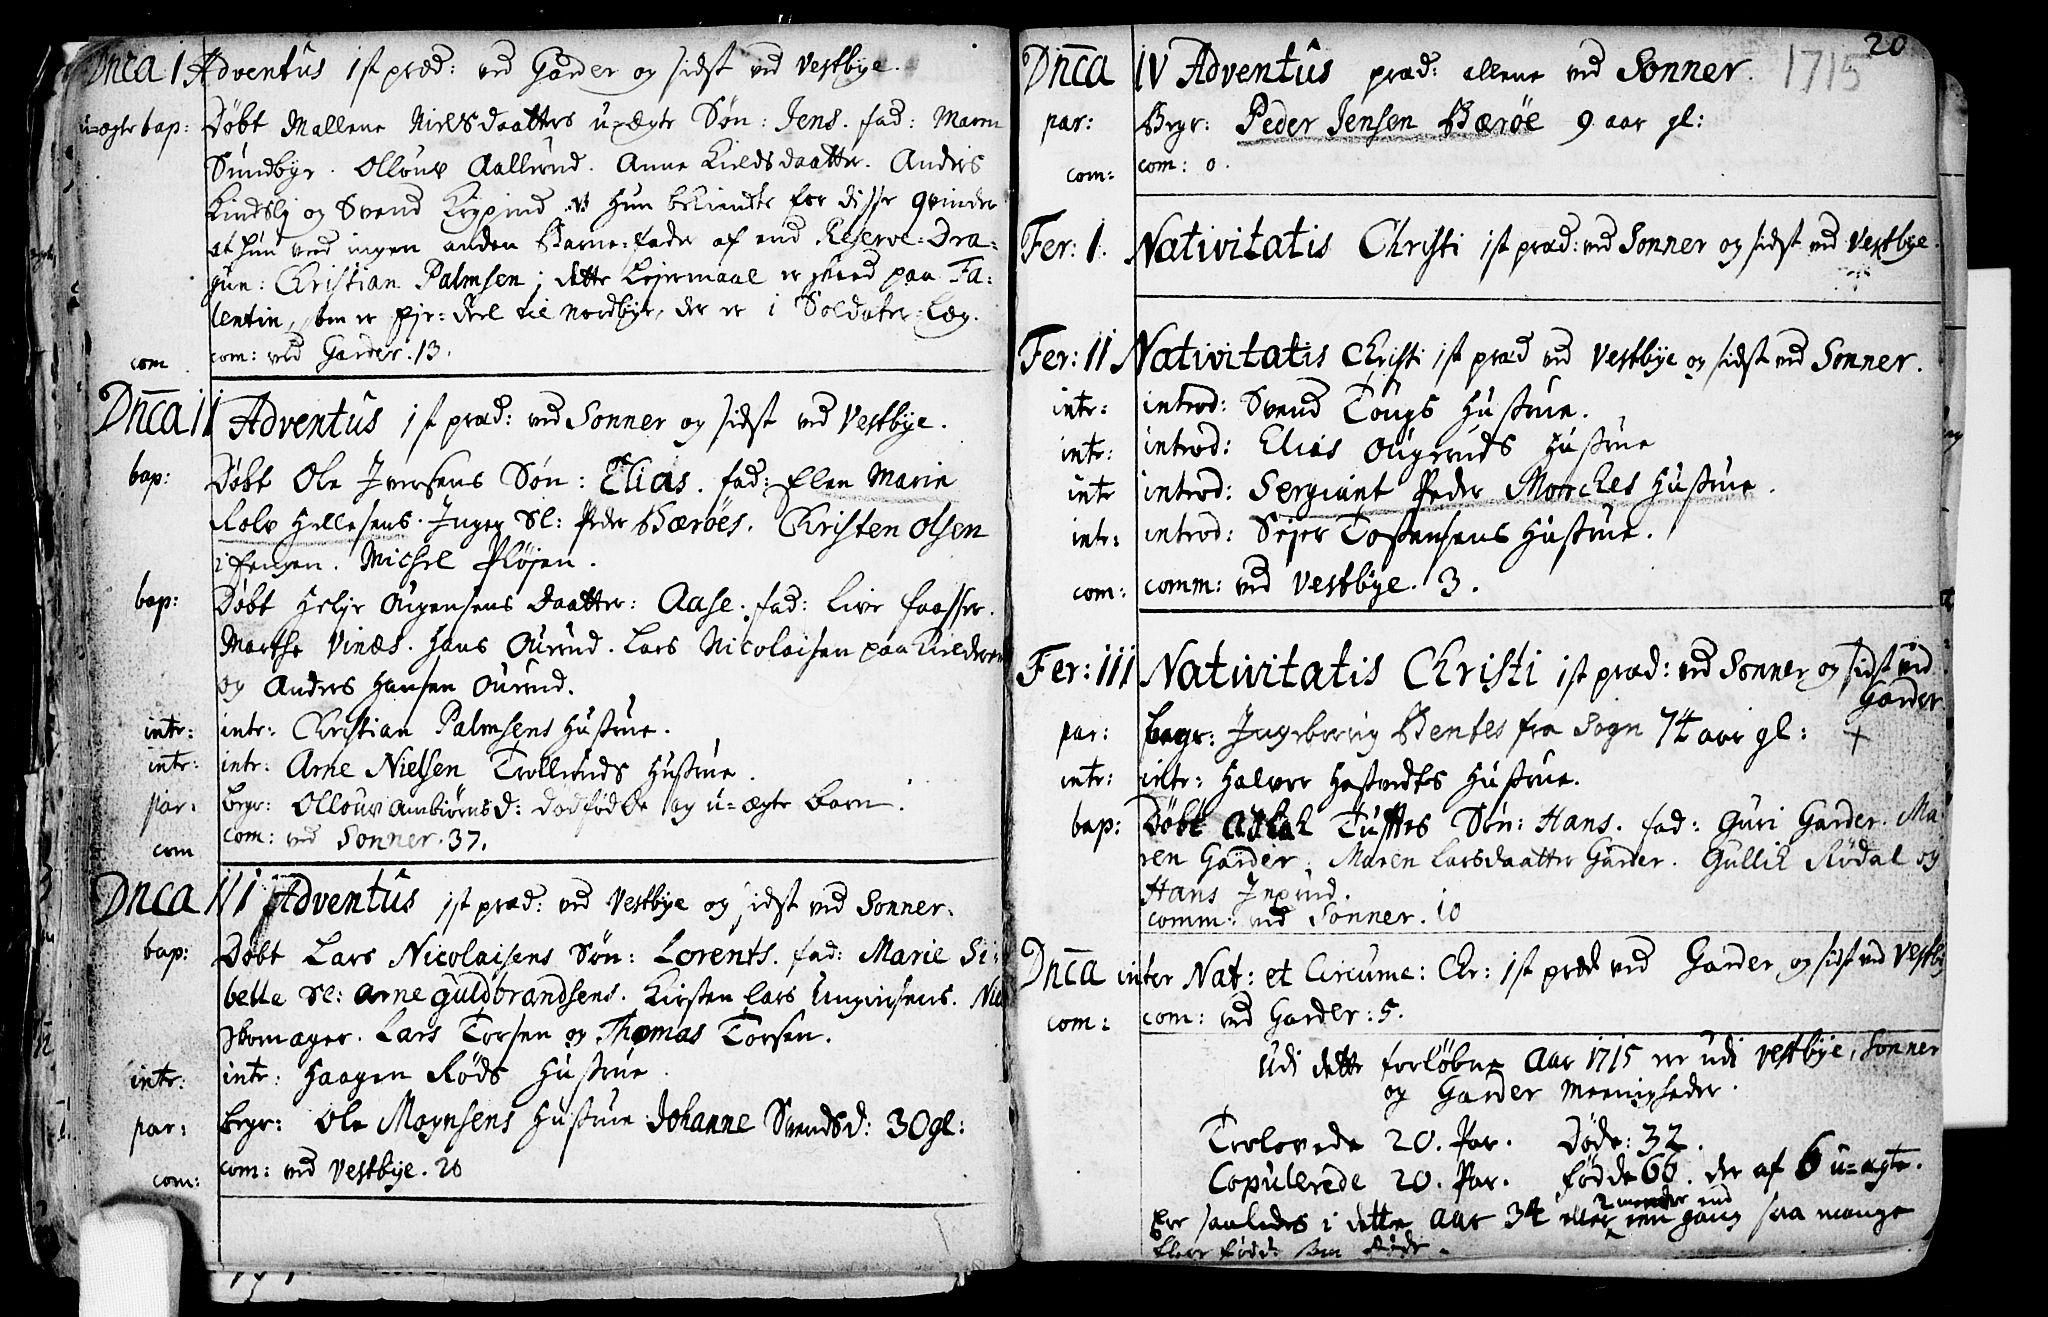 Dn̅ca I Adventûs 1st præd: ved Garder og sidst ved Vestbye.
u=ægte bap: Døbt Mallene Nielsdaatters uægte Søn: Jens. fad: Maren
Sundbye. Ollouv Aallerud. Anne Kieldsdaatter. Anders
Kindslj og Svend Krypind. Hun bekiendte for disse qvinder
at hun ved ingen anden Barne=fader af end Reserve=Dra=
gun: Christian Palmsen; dette Lejermaal er skeed paa Fa=
lentin, som er Pje=deel til Nordbye, der er i Soldater=Læg.
com com: ved Garder. 13.
Dn̅ca II Adventûs 1st præd: ved Sonner og sidst ved Vestbye.
bap: Døbt Ole Iversens Søn: Elias. fad: Elen Marie
Rolv Hellesens. Inger Sl: Peder Bærøes. Christen Olsen
i Engen. Michel Pløjen.
bap: Døbt Helje Ougensens Daatter: Aase. fad: Live Faasser.
Marthe Vinæs. Hans Ourud. Lars Nicolaisen paa Kilderen
og Anders Hansen Ourud.
intr: intr: Christian Palmsens Hustrue.
intr: intr: Arne Nielsen Trollruds Hustrue.
par: begr: Ollouv Ambiørnsd: dødfødde og u=ægte barn.
com com: ved Sonner. 37.
Dn̅ca III Adventûs 1st præd: ved Vestbye og sidst ved Sonner.
bap: Døbt Lars Nicolaisens Søn: Lorents. fad: Marie Si=
belle Sl: Arne Guldbrandsens. Kirsten Lars Engvirsens. Niels
Skomager. Lars Torsen og Thomas Torsen.
intr: intr: Haagen Røds Hustrue.
par: begr: Ole Mognsens Hustrue Johanne Svendsd: 30 gl:
com: com: ved Vestbye. 26
20
1715
Dn̅ca IV Adventûs præd: allene ved Sonner.
par: Begr: Peder Jensen Bærøe 9 aar gl:
com: com: 0.
Fer: I. Nativitatis Christi 1st præd: ved Sonner og sidst ved Vestbye.
Fer: II Nativitatis Christi 1st præd ved Vestbye og sidst ved Sonner.
intr: introd: Svend Tougs Hustrue.
intr: introd: Elias Ougeruds Hustrue
intr introd: Sergiant Peder Morches Hustrue.
intr: introd: Sejer Tostensens Hustrue.
com: comm: ved Vestbye. 3.
Fer: III Nativitatis Christi 1st præd: ved Sonner og sidst ved
Garder
par: begr: Ingeborrig Bentes fra Sogn 74 aar gl: +
intr: intr: Halvor Hastvedts Hustrue.
bap: Døbt Aslak Tufftes Søn: Hans. fad: Guri Garder. Ma=
ren Garder. Maren Larsdaatter Garder. Gullik Rødal og
Hans Inprud.
comm: ved Sonner. 10
Dn̅ca inter Nat: et Circumc: Chr: 1st præd ved Garder og sidst ved Vestby
com: com: ved Garder: 5.
Udi dette forløbne Aar 1715 er udi Vestbye, Sonner
og Garder Meenigheder.
Trolovede 20. Par. Døde: 32.
Copulerede 20. Par. fødde 66. der af 6 u=ægte.
Er saaledes i dette Aar 34 eller 2 meeder end een gang saa mange
fleere fødde som døde.